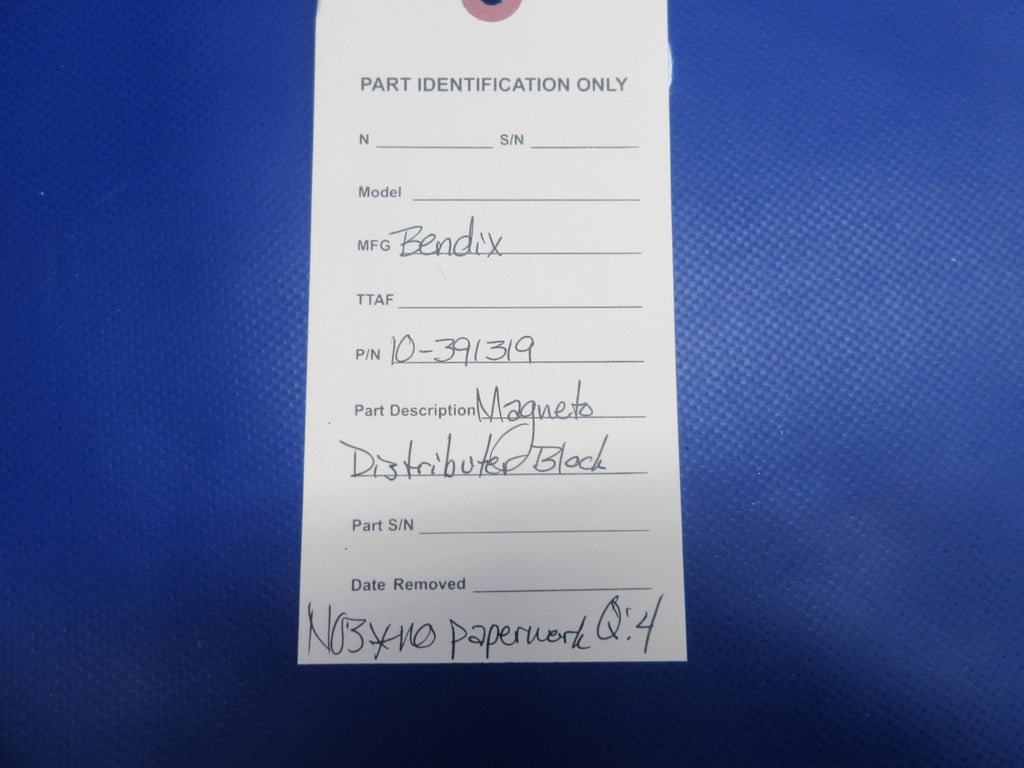 PART IDENTIFICATION ONLY
N S/N
Model
MFG Bendix
TTAF
P/N 10-391319
Part Description Magneto
Distributer Block
Part S/N
Date Removed
N03 * no paperwork Q:4